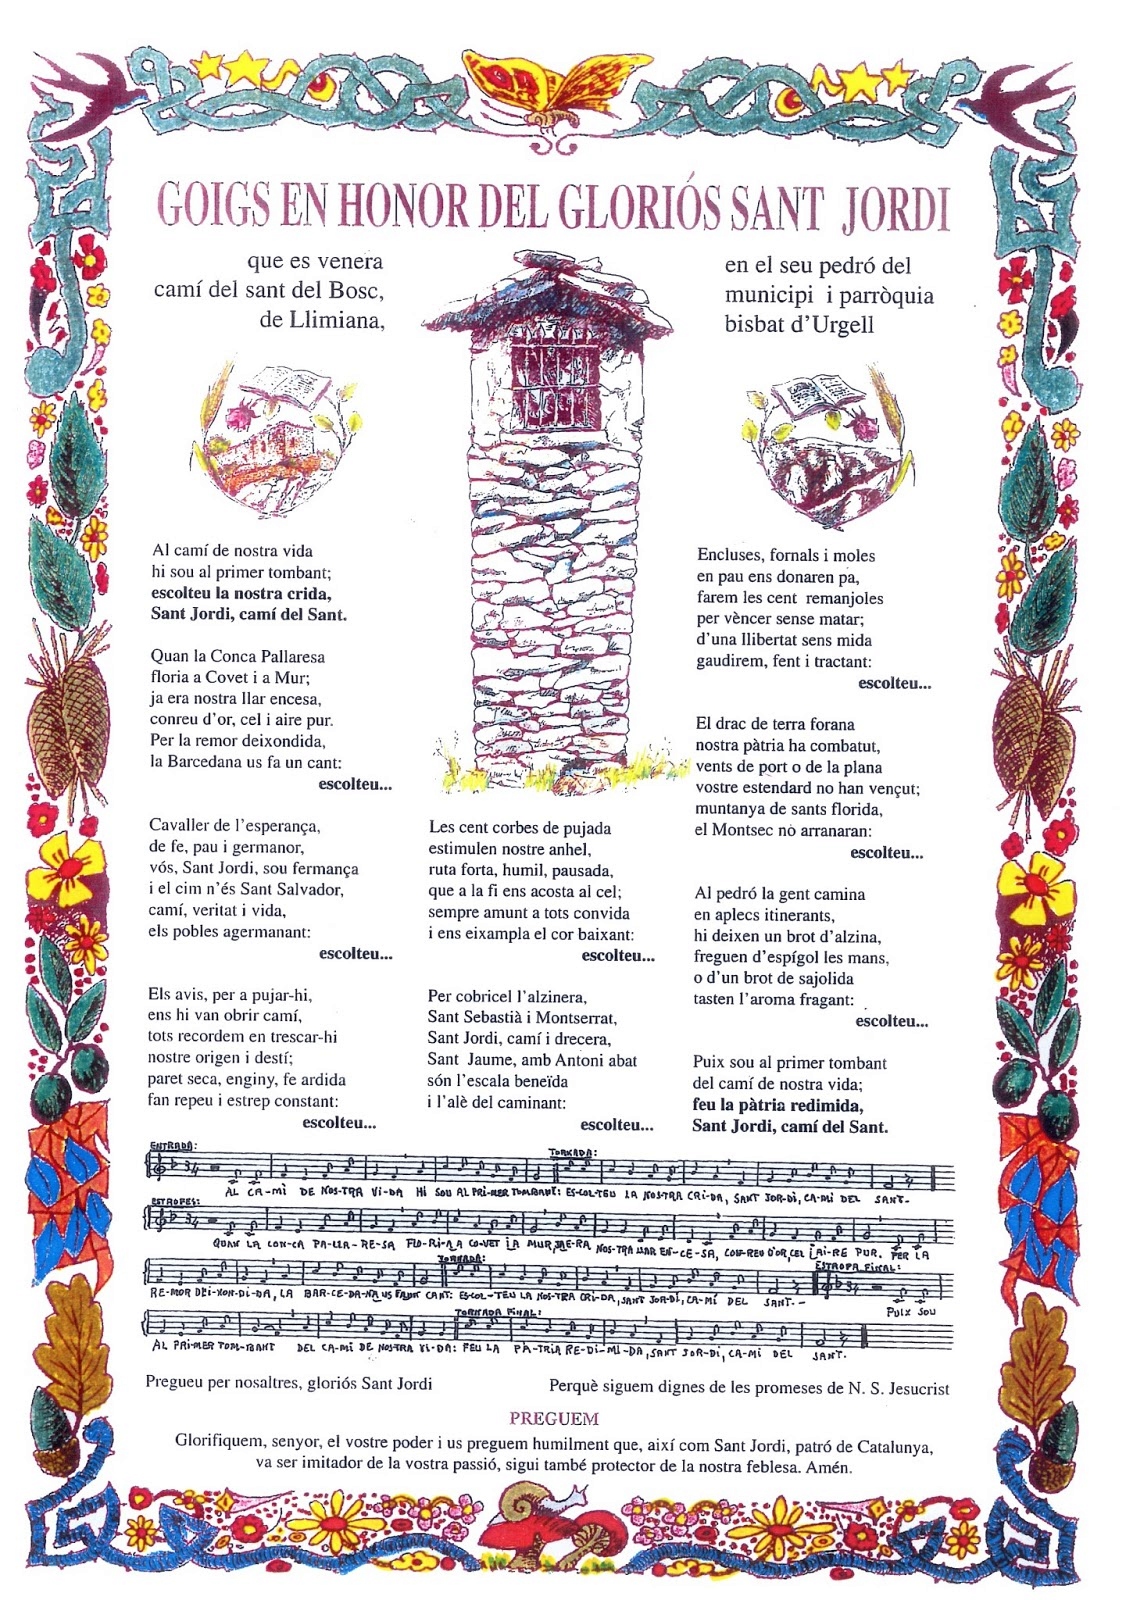 GOIGS EN HONOR DEL GLORIÓS SANT JORDI
que es venera en el seu pedró del
camí del sant del Bosc, municipi i parròquia
de Llimiana, bisbat d'Urgell
Al camí de nostra vida
hi sou al primer tombant;
escolteu la nostra crida,
Sant Jordi, camí del Sant.
Quan la Conca Pallaresa
floria a Covet i a Mur;
ja era nostra llar encesa,
conreu d'or, cel i aire pur.
Per la remor deixondida,
la Barcedana us fa un cant:
escolteu...
Cavaller de l'esperança,
de fe, pau i germanor,
vós, Sant Jordi, sou fermança
i el cim n'és Sant Salvador,
camí, veritat i vida,
els pobles agermanant:
escolteu...
Els avis, per a pujar-hi,
ens hi van obrir camí,
tots recordem en trescar-hi
nostre origen i destí;
paret seca, enginy, fe ardida
fan repeu i estrep constant:
escolteu...
Les cent corbes de pujada
estimulen nostre anhel,
ruta forta, humil, pausada,
que a la fi ens acosta al cel;
sempre amunt a tots convida
i ens eixampla el cor baixant:
escolteu...
Per cobricel l'alzinera,
Sant Sebastià i Montserrat,
Sant Jordi, camí i drecera,
Sant Jaume, amb Antoni abat
són l'escala beneïda
i l'alè del caminant:
escolteu...
Encluses, fornals i moles
en pau ens donaren pa,
farem les cent remanjoles
per vèncer sense matar;
d'una llibertat sens mida
gaudirem, fent i tractant:
escolteu...
El drac de terra forana
nostra pàtria ha combatut,
vents de port o de la plana
vostre estendard no han vençut;
muntanya de sants florida,
el Montsec no arranaran:
escolteu...
Al pedró la gent camina
en aplecs itinerants,
hi deixen un brot d'alzina,
freguen d'espígol les mans,
o d'un brot de sajolida
tasten l'aroma fragant:
escolteu...
Puix sou al primer tombant
del camí de nostra vida;
feu la pàtria redimida,
Sant Jordi, camí del Sant.
ENTRADA: TORNADA:
AL CA-MÍ DE NOS-TRA VI-DA HI SOU AL PRI-MER TOMBANT: ES-COL-TEU LA NOS-TRA CRI-DA, SANT JOR-DI, CA-MÍ DEL SANT.-
ESTROFES:
QUAN LA CON-CA PA-LLA-RE-SA FLO-RI-A A CO-VET I A MUR, JA E-RA NOS-TRA LLAR EN-CE-SA, CON-REU D'OR, CEL I AI-RE PUR. PER LA
TORNADA: ESTROFA FINAL:
RE-MOR DEI-XON-DI-DA, LA BAR-CE-DA-NA US FA UN CANT: ES-COL-TEU LA NOS-TRA CRI-DA, SANT JOR-DI, CA-MÍ DEL SANT.- PUIX SOU
TORNADA FINAL:
AL PRI-MER TOM-BANT DEL CA-MÍ DE NOSTRA VI-DA: FEU LA PA-TRIA RE-DI-MI-DA, SANT JOR-DI, CA-MÍ DEL SANT.
Pregueu per nosaltres, gloriós Sant Jordi Perquè siguem dignes de les promeses de N. S. Jesucrist
PREGUEM
Glorifiquem, senyor, el vostre poder i us preguem humilment que, així com Sant Jordi, patró de Catalunya,
va ser imitador de la vostra passió, sigui també protector de la nostra feblesa. Amén.